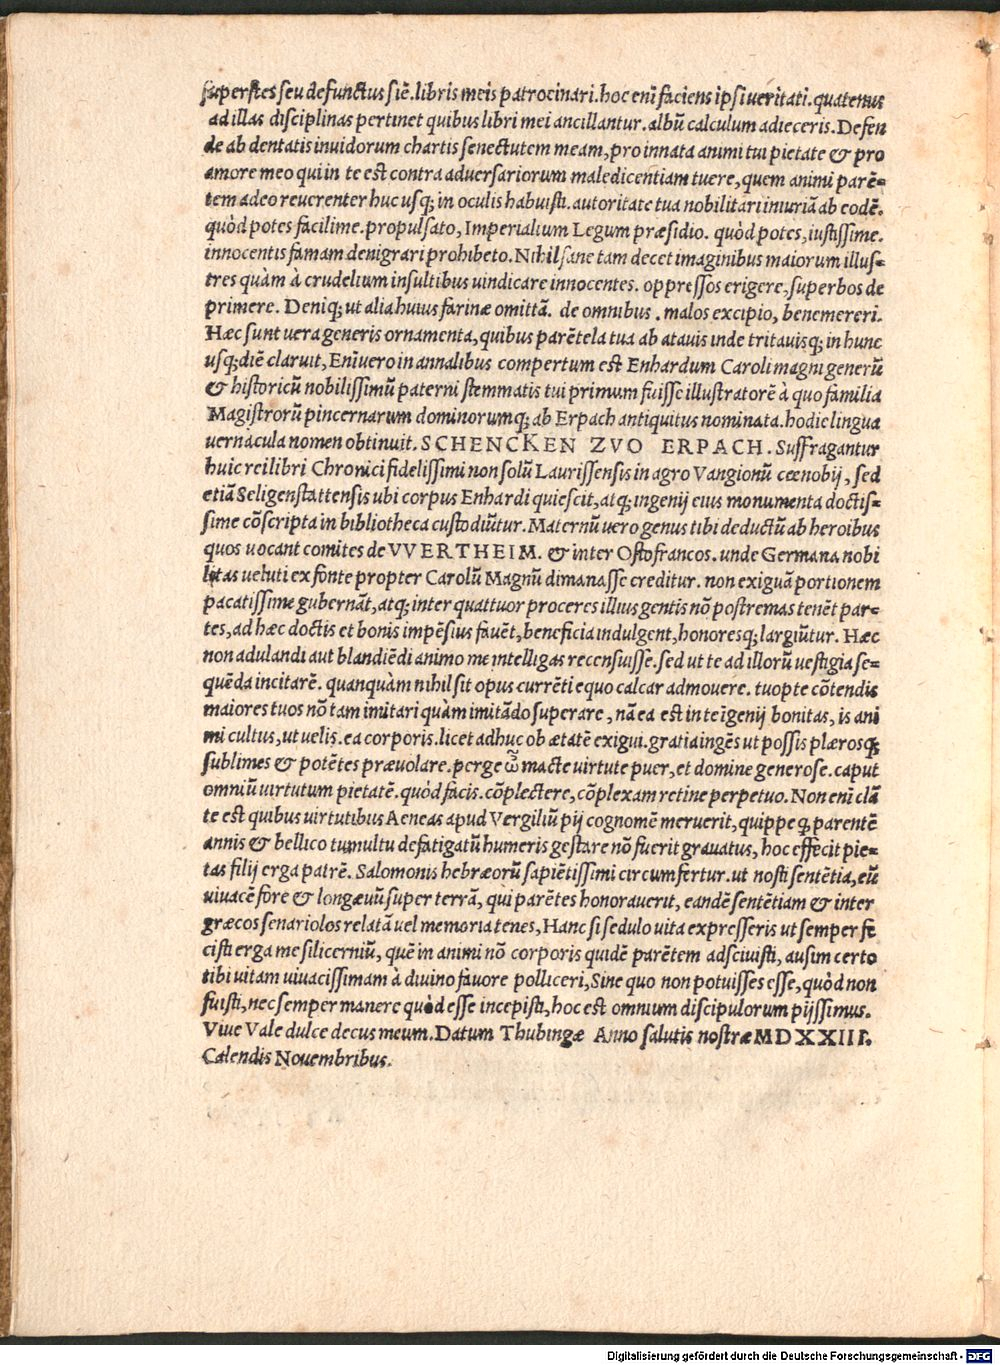 superstes seu defunctus siē. libris meis patrocinari. hoc enī faciens ipsi veritati. quatenus
ad illas disciplinas pertinet quibus libri mei ancillantur. albū calculum adieceris. Defen
de ab dentatis inuidorum chartis senectutem meam, pro innata animi tui pietate & pro
amore meo qui in te est contra aduersariorum maledicentiam tuere, quem animi parē=
tem adeo reuerenter huc usq; in oculis habuisti. autoritate tua nobilitari iniuriā ab eodē.
quòd potes facilime. propulsato, Imperialium Legum præsidio. quòd potes, iustissime.
innocentis famam denigrari prohibeto. Nihil sane tam decet imaginibus maiorum illus=
tres quàm à crudelium insultibus uindicare innocentes. oppressos erigere, superbos de
primere. Deniq; ut alia huius farinæ omittā. de omnibus . malos excipio, benemereri.
Hæc sunt uera generis ornamenta, quibus parētela tua ab atauis inde tritauisq; in hunc
usq; diē claruit, Enīuero in annalibus compertum est Enhardum Caroli magni generū
& historicū nobilissimū paterni stemmatis tui primum fuisse illustratorē à quo familia
Magistrorū pincernarum dominorumq; ab Erpach antiquitus nominata. hodie lingua
uernacula nomen obtinuit. SCHENCKEN ZVO ERPACH. Suffragantur
huic rei libri Chronici fidelissimi non solū Laurissensis in agro Vangionū cœnobij, sed
etiā Seligenstattensis ubi corpus Enhardi quiescit, atq; ingenij eius monumenta doctis=
sime cōscripta in bibliotheca custodiūtur. Maternū uero genus tibi deductū ab heroibus
quos uocant comites de VVERTHEIM. & inter Ostofrancos. unde Germana nobi
litas ueluti ex fonte propter Carolū Magnū dimanasse creditur. non exiguā portionem
pacatissime gubernāt, atq; inter quattuor proceres illius gentis nō postremas tenēt par=
tes, ad hæc doctis et bonis impēsius fauēt, beneficia indulgent, honoresq; largiūtur. Hæc
non adulandi aut blandiēdi animo me intelligas recensuisse. sed ut te ad illorū uestigia se=
quēda incitarē. quanquàm nihil sit opus currēti equo calcar admouere. tuopte cōtendis
maiores tuos nō tam imitari quàm imitādo superare, nā ea est in te īgenij bonitas, is ani
mi cultus, ut uelis. ea corporis. licet adhuc ob ætatē exigui. gratia ingēs ut possis plærosq;
sublimes & potētes præuolare. perge ὦ macte virtute puer, et domine generose. caput
omniū uirtutum pietatē. quòd facis. cōplectere, cōplexam retine perpetuo. Non enī clā
te est quibus uirtutibus Aeneas apud Vergiliū pij cognomē meruerit, quippe q parentē
annis & bellico tumultu defatigatū humeris gestare nō fuerit grauatus, hoc effecit pie=
tas filij erga patrē. Salomonis hebræorū sapiētissimi circumfertur. ut nosti sentētia, eū
uiuacē fore & longæuū super terrā, qui parētes honorauerit, eandē sentētiam & inter
græcos senariolos relatā uel memoria tenes, Hanc si sedulo uita expresseris ut semper fe
cisti erga me siliceruiū, quē in animi nō corporis quidē parētem adsciuisti, ausim certo
tibi uitam uiuacissimam à diuino fauore polliceri, Sine quo non potuisses esse, quòd non
fuisti, nec semper manere quòd esse incepisti, hoc est omnium discipulorum pijssimus.
Viue Vale dulce decus meum. Datum Thubingæ Anno salutis nostræ MDXXIII.
Calendis Nouembribus.
Digitalisierung gefördert durch die Deutsche Forschungsgemeinschaft - DFG